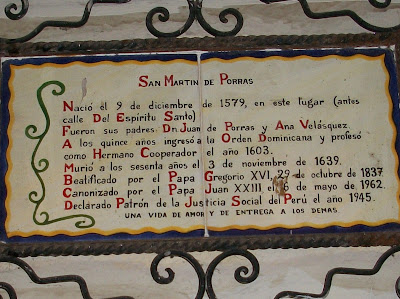 San Martin de Porras
Nació el 9 de diciembre de 1579, en este lugar (antes
calle Del Espíritu Santo)
Fueron sus padres: Dn. Juan de Porras y Ana Velásquez.
A los quince años ingresó a la Orden Dominicana y profesó
como Hermano Cooperador el año 1603.
Murió a los sesenta años el 3 de noviembre de 1639.
Beatificado por el Papa Gregorio XVI, 29 de octubre de 1837
Canonizado por el Papa Juan XXIII 6 de mayo de 1962.
Declarado Patrón de la Justicia Social del Perú el año 1945.
UNA VIDA DE AMOR Y DE ENTREGA A LOS DEMAS.